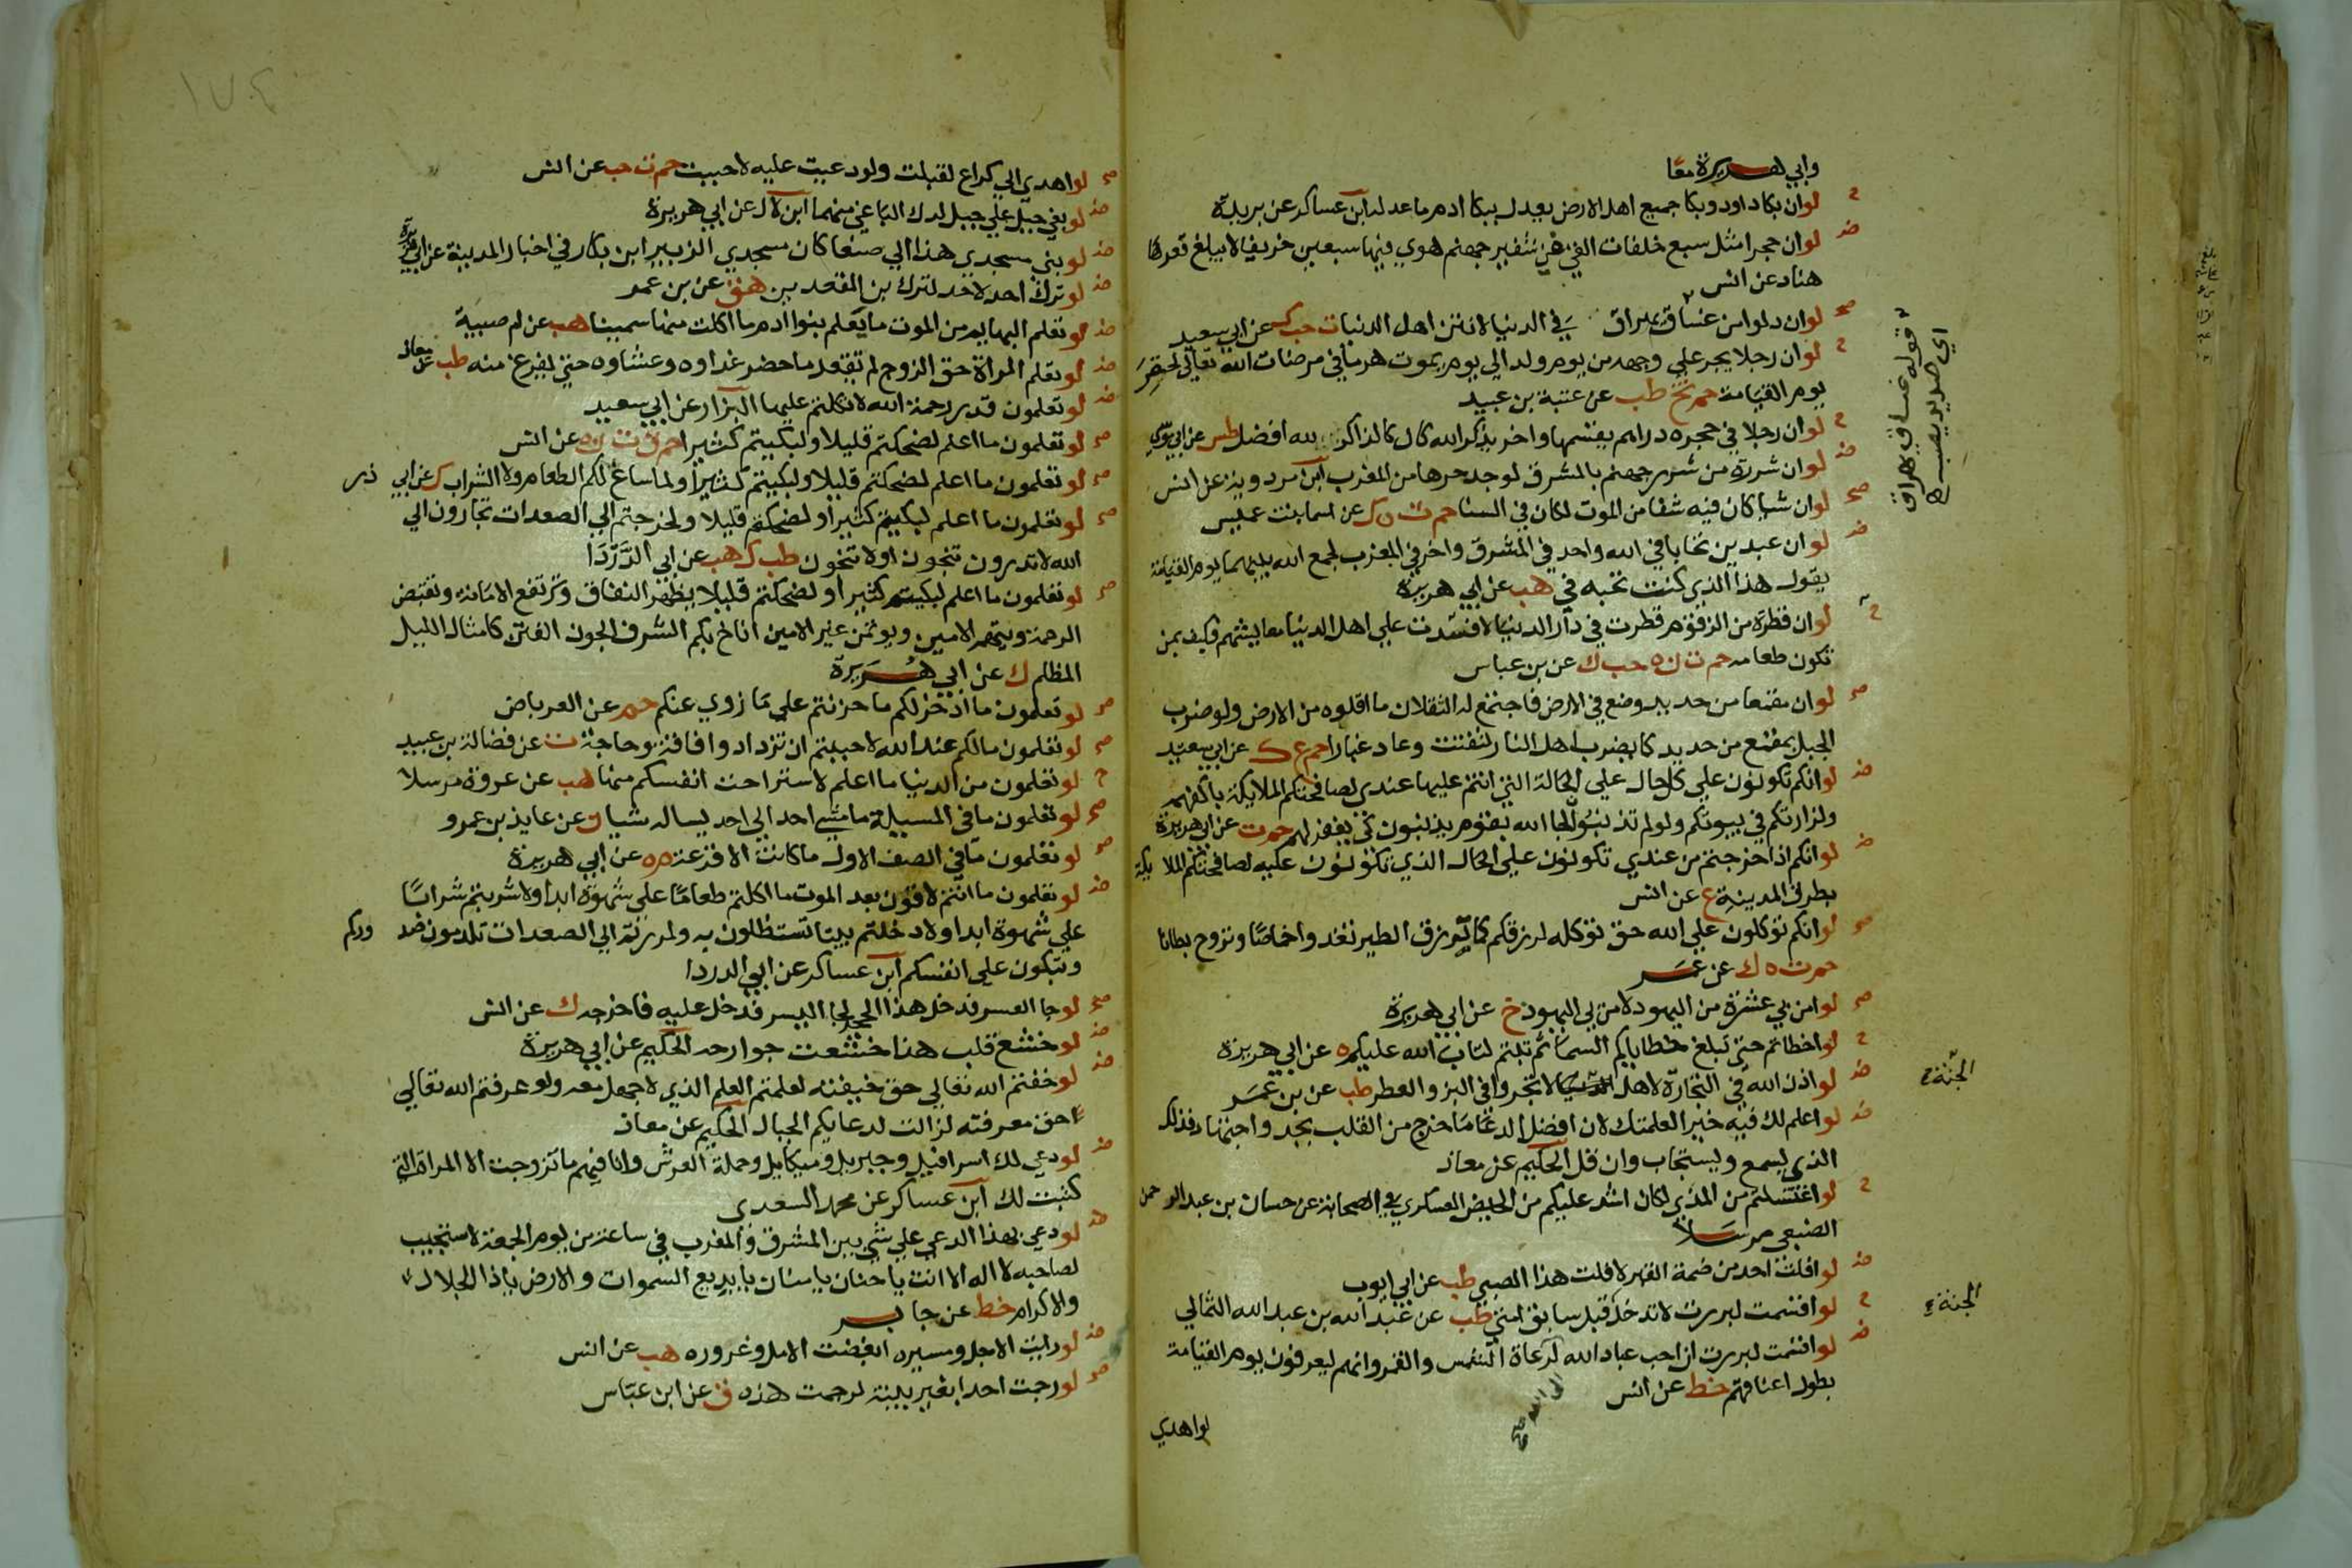 وابي هريرة معا
ح لو ان بكا داود وبكا جميع اهل الارض يعدل ببكا ادم ما عدله ابن عساكر عن بريدة
ض لو ان حجرا مثل سبع خلفات القي من شفير جهنم هوي فيها سبعين خريفا لا يبلغ قعرها
هناد عن انس
صح لو ان دلوا من غساق يهراق في الدنيا لانتن اهل الدنيا ت حب ك عن ابي سعيد
ح لو ان رجلا يجر علي وجهه من يوم ولد الي يوم يموت هرما في مرضات الله تعالي لحقره
يوم القيامة حم تخ طب عن عتبة بن عبيد
ح لو ان رجلا في حجره دراهم يقسمها واخر يذكر الله كان الذاكر لله افضل طس عن ابي موسي
ض لو ان شررة من شرر جهنم بالمشرق لوجد حرها من المغرب ابن مردويه عن انس
صح لو ان شيا كان فيه شفا من الموت لكان في السنا حم ت ه ك عن اسما بنت عميس
ض لو ان عبدين تحابا في الله واحد في المشرق واخر في المغرب لجمع الله بينهما يوم القيامة
يقول هذا الذي كنت تحبه في هب عن ابي هريرة
ح لو ان قطرة من الزقوم قطرت في دار الدنيا لافسدت علي اهل الدنيا معايشهم فكيف بمن
تكون طعامه حم ت ن ه حب ك عن بن عباس
صح لو ان مقمعا من حديد وضع في الارض فاجتمع له الثقلان ما اقلوه من الارض ولو ضرب
الجبل بمقمع من حديد كما يضرب اهل النار لتفتت وعاد غبارا حم ع ك عن ابي سعيد
ض لو انكم تكونون علي كل حال علي الحالة التي انتم عليها عندي لصافحتكم الملايكة باكفهم
ولزارتكم في بيوتكم ولو لم تذنبوا لجا الله بقوم يذنبون كي يغفر لهم حم ت عن ابي هريرة
ض لو انكم اذا خرجتم من عندي تكونون علي الحال الذي تكونون عليه لصافحتكم الملايكة
بطرق المدينة ع عن انس
صح لو انكم توكلون علي الله حق توكله لرزقكم كما يرزق الطير تغدوا خماصا وتروح بطانا
حم ت ه ك عن عمر
صح لو امن بي عشرة من اليهود لامن بي اليهود خ عن ابي هريرة
ح لو اخطاتم حتي تبلغ خطاياكم السما ثم تبتم لتاب الله عليكم ه عن ابي هريرة
ض لو اذن الله في التجارة لاهل الجنة لاتجروا في البز والعطر طب عن بن عمر
ض لو اعلم لك فيه خيرا لعلمتك لان افضل الدعا ما خرج من القلب بجد واجتهاد فذلك
الذي يسمع ويستجاب وان قل الحكيم عن معاذ
ح لو اغتسلتم من المذي لكان اشد عليكم من الحيض العسكري في الصحابة عن حسان بن عبد الرحمن
الضبعي مرسلا
ض لو افلت احد من ضمة القبر لافلت هذا الصبي طب عن ابي ايوب
ح لو اقسمت لبررت لا تدخل قبل سابق امتي طب عن عبد الله بن عبد الله الثمالي
ض لو اقسمت لبررت ان احب عباد الله لرعاة الشمس والقمر وانهم ليعرفون يوم القيامة
بطول اعناقهم خط عن انس
الي الله صح
لو اهدي
قوله غساق يهراق
اي صديد يصب
الجنة
الجنة
صح لو اهدي الي كراع لقبلت ولو دعيت عليه لاجبت حم ت حب عن انس
ض لو بغي جبل علي جبل لدك الباغي منهما ابن لال عن ابي هريرة
ض لو بني مسجدي هذا الي صنعا كان مسجدي الزبير ابن بكار في اخبار المدينة عن ابي هريرة
ض لو ترك احد لاحد لترك بن المقعدين هق عن بن عمر
ض لو تعلم البهايم من الموت ما يعلم بنوا ادم ما اكلت منها سمينا هب عن ام صبية
ض لو تعلم المراة حق الزوج لم تقعد ما حضر غداوه وعشاوه حتي يفرغ منه طب عن معاذ
ض لو تعلمون قدر رحمة الله لاتكلتم عليها البزار عن ابي سعيد
صح لو تعلمون ما اعلم لضحكتم قليلا ولبكيتم كثيرا حم ق ت ن ه عن انس
صح لو تعلمون ما اعلم لضحكتم قليلا ولبكيتم كثيرا ولما ساغ لكم الطعام ولا الشراب ك عن ابي ذر
صح لو تعلمون ما اعلم لبكيتم كثيرا ولضحكتم قليلا ولخرجتم الي الصعدات تجارون الي
الله لا تدرون تنجون اولا تنجون طب ك هب عن ابي الدردا
صح لو تعلمون ما اعلم لبكيتم كثيرا ولضحكتم قليلا يظهر النفاق وترتفع الامانة وتقبض
الرحمة ويتهم الامين ويوتمن غير الامين اناخ بكم الشرف الجون الفتن كامثال الليل
المظلم ك عن ابي هريرة
صح لو تعلمون ما ادخر لكم ما حزنتم علي ما زوي عنكم حم عن العرباض
صح لو تعلمون مالكم عند الله لاحببتم ان تزدادوا فاقة وحاجة ت عن فضالة بن عبيد
ح لو تعلمون من الدنيا ما اعلم لاستراحت انفسكم منها هب عن عروة مرسلا
صح لو تعلمون ما في المسيلة ما مشي احد الي احد يساله شيا ن عن عايذ بن عمرو
صح لو تعلمون ما في الصف الاول ما كانت الا قرعة م ه عن ابي هريرة
ض لو تعلمون ما انتم لاقون بعد الموت ما اكلتم طعاما علي شهوة ابدا ولا شربتم شرابا
علي شهوة ابدا ولا دخلتم بيتا تستظلون به ولمررتم الي الصعدات تلدمون صدوركم
وتبكون علي انفسكم ابن عساكر عن ابي الدردا
صح لو جا العسر فدخل هذا الجحر لجا اليسر فدخل عليه فاخرجه ك عن انس
ض لو خشع قلب هذا خشعت جوارحه الحكيم عن ابي هريرة
ض لو خفتم الله تعالي حق خيفته لعلمتم العلم الذي لا جهل معه ولو عرفتم الله تعالي
حق معرفته لزالت لدعايكم الجبال الحكيم عن معاذ
ض لو دعي لك اسرافيل وجبريل وميكايل وحملة العرش وانا فيهم ما تزوجت الا المراة التي
كتبت لك ابن عساكر عن محمد السعدي
ض لو دعي بهذا الدعي علي شي بين المشرق والمغرب في ساعة من يوم الجمعة لاستجيب
لصاحبه لا اله الا انت يا حنان يا منان يا بديع السموات والارض يا ذا الجلال
والاكرام خط عن جابر
ض لو رايت الاجل ومسيره ابغضت الامل وغروره هب عن انس
صح لو رجمت احدا بغير بينة لرجمت هذه ق عن ابن عباس
١٧٤